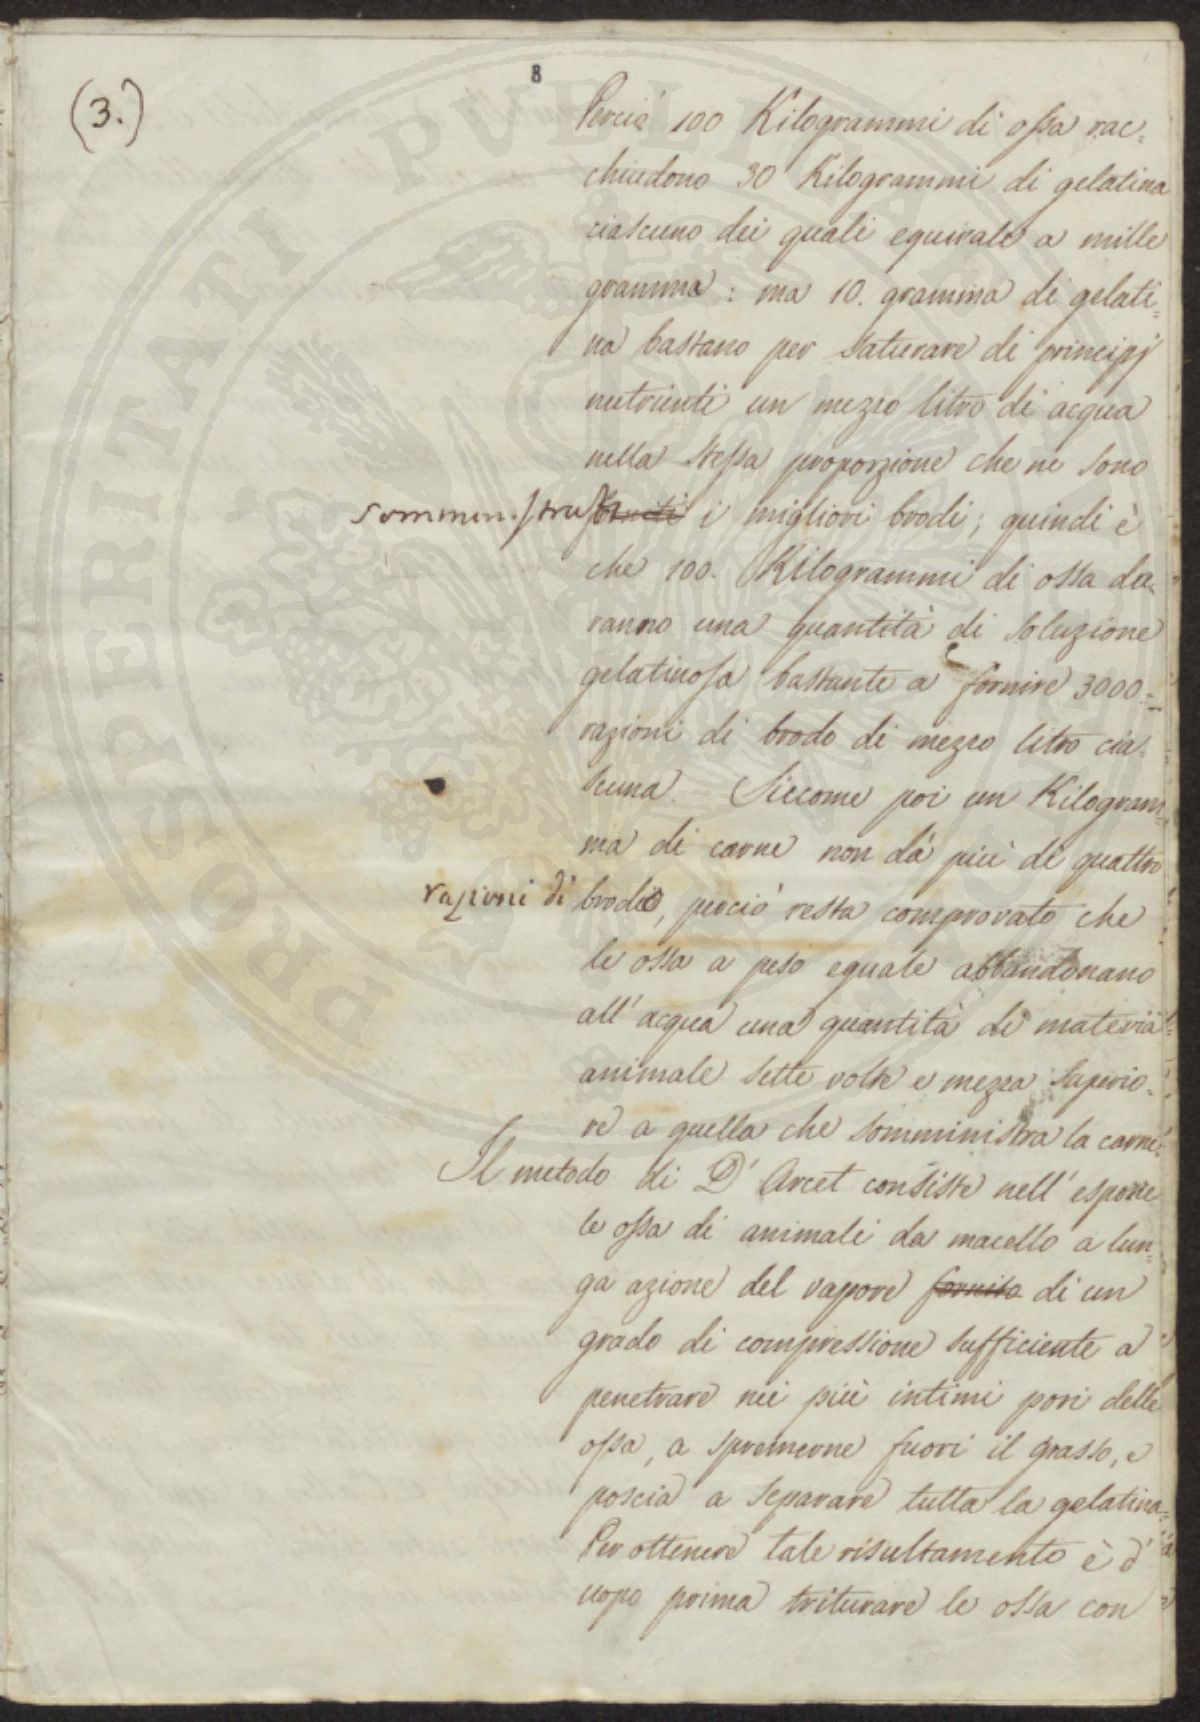 8
(3.)
Perciò 100 Kilogrammi di ossa rac=
chiudono 30 Kilogrammi di gelatina
ciascuno dei quali equivale a mille
gramma : ma 10. gramma di gelati=
na bastano per saturare di principj
nutrienti un mezzo litro di acqua
nella stessa proporzione che ne sono
forniti i migliori brodi ; quindi è
che 100. Kilogrammi di ossa da=
ranno una quantità di soluzione
gelatinosa bastante a fornire 3000=
razioni di brodo di mezzo litro cia=
scuna. Siccome poi un Kilogram=
ma di carne non dà più di quattro
razioni di brodo, perciò resta comprovato che
le ossa a peso eguale abbandonano
all' acqua una quantità di materia
animale sette volte e mezza superio=
re a quella che somministra la carne.
Il metodo di D' Arcet consiste nell' esporre
le ossa di animali da macello a lun=
ga azione del vapore fornito di un
grado di compressione sufficiente a
penetrare nei più intimi pori delle
ossa, a spremerne fuori il grasso, e
poscia a separare tutta la gelatina=
Per ottenere tale risultamento è d'
uopo prima triturare le ossa con
PROSPERITATI PUBLICAE